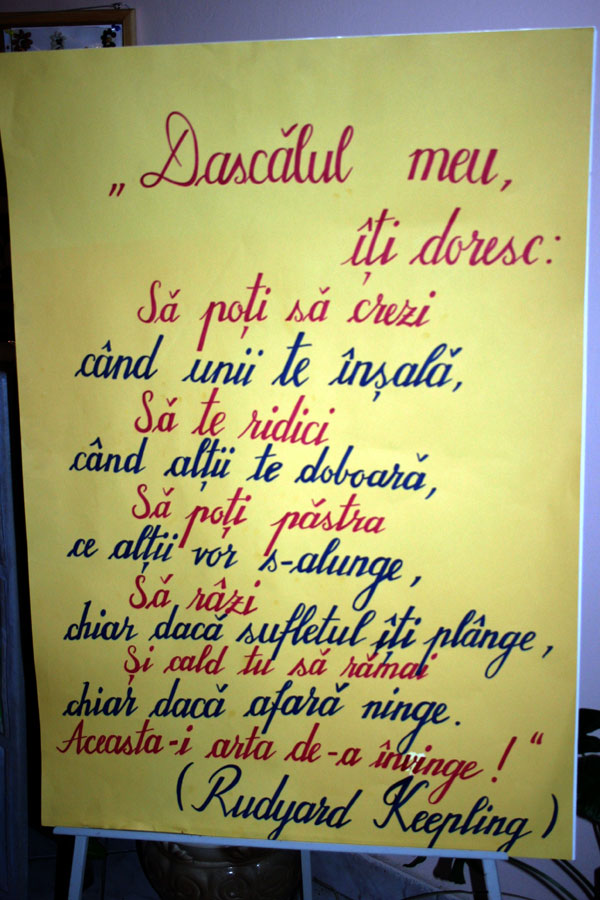 „Dascălul meu,
îți doresc:
Să poți să crezi
când unii te înșală,
Să te ridici
când alții te doboară,
Să poți păstra
ce alții vor s-alunge,
Să râzi
chiar dacă sufletul îți plânge,
Și cald tu să rămai
chiar dacă afară ninge.
Aceasta-i arta de-a învinge!“
(Rudyard Keepling)